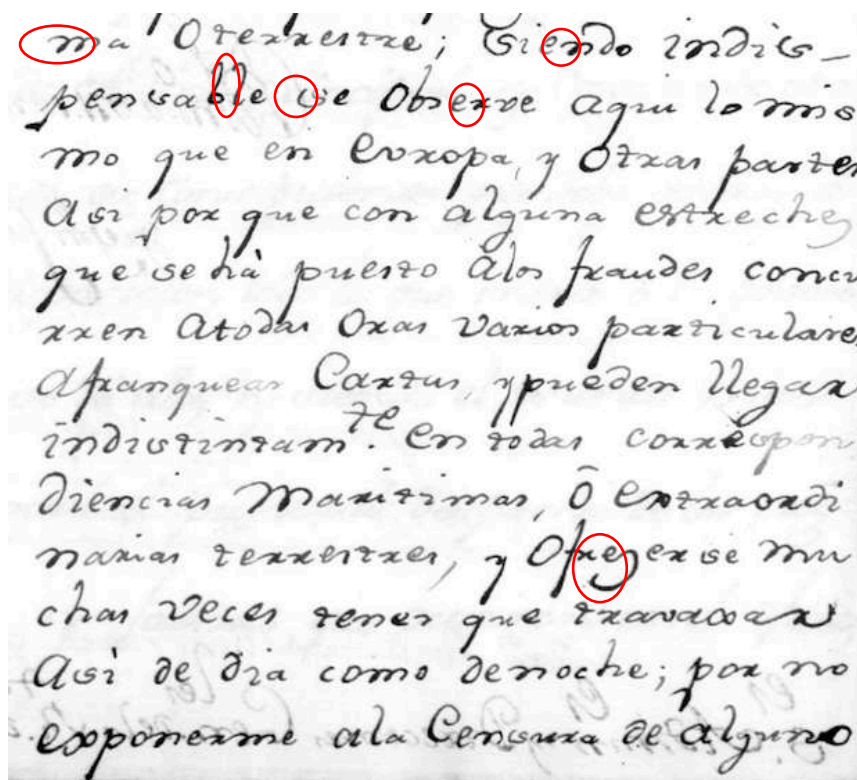 ma O terrestre; siendo indis-
pensable se Observe aqui lo mis
mo que en Europa, y Otras partes
Asi por que con alguna estrechez
que se hà puesto à los fraudes concu
rren Atodas Oras varios particulares
Afranquear Cartas, y pueden llegar
indistintam.te en todas correspon
diencias Maritimas, Ô extraordi
narias terrestres, y Ofrezerse mu
chas veces tener que travaxar
Asi de dia como denoche; por no
exponerme ala Censura de alguno